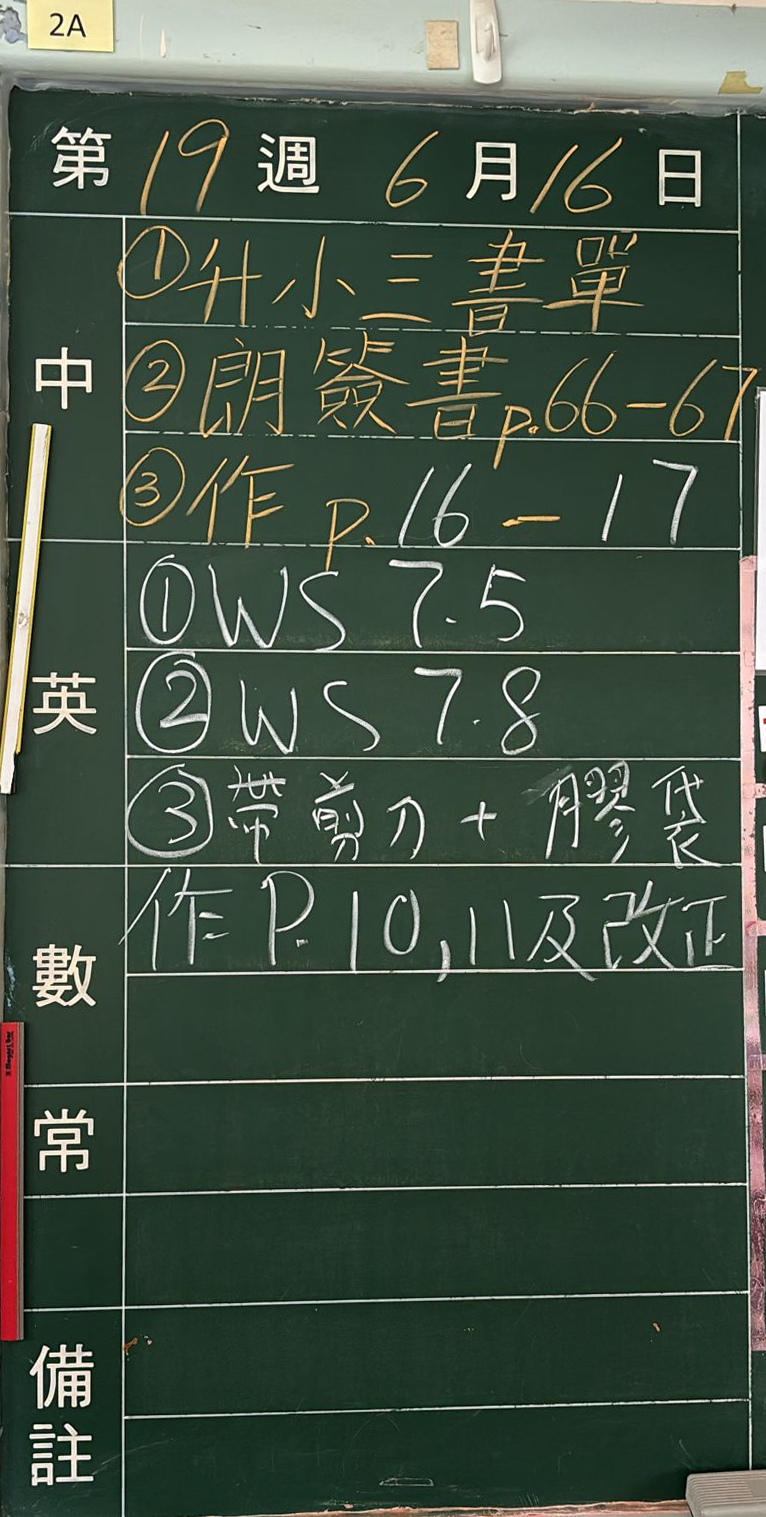 2A
第 19 週 6 月 16 日
中
①升小三書單
②朗簽書p.66-67
③作 p.16-17
英
①WS 7.5
②WS 7.8
③帶剪刀+膠袋
數
作 P.10,11及改正
常
備註